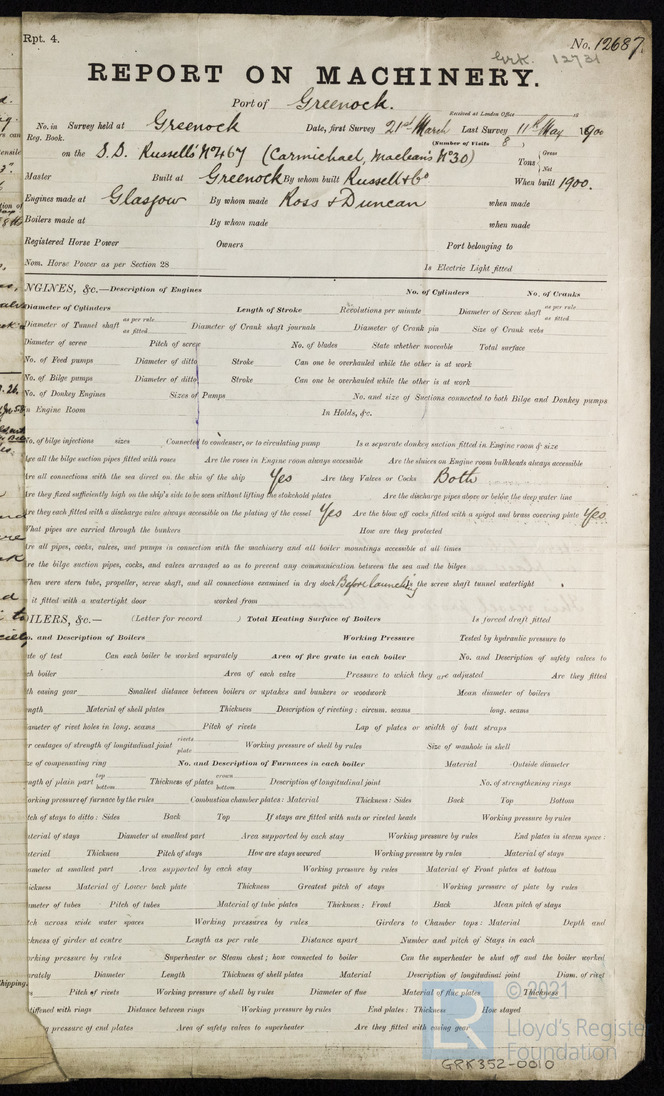 Rpt. 4.
No. 12687.
Grk. 12731
REPORT ON MACHINERY.
Port of Greenock.
Received at London Office 18
No. in Survey held at Greenock Date, first Survey 21st March Last Survey 11th May 1900
Reg. Book.
(Number of Visits 8 )
on the S.S. Russell's No 467 (Carmichael, Maclean's No 30) Tons { Gross
Net
Master Built at Greenock By whom built Russell & Co When built 1900.
Engines made at Glasgow By whom made Ross & Duncan when made
Boilers made at By whom made when made
Registered Horse Power Owners Port belonging to
Nom. Horse Power as per Section 28 Is Electric Light fitted
NGINES, &c.—Description of Engines No. of Cylinders No. of Cranks
Diameter of Cylinders Length of Stroke Revolutions per minute Diameter of Screw shaft as per rule
as fitted
Diameter of Tunnel shaft as per rule
as fitted Diameter of Crank shaft journals Diameter of Crank pin Size of Crank webs
Diameter of screw Pitch of screw No. of blades State whether moveable Total surface
No. of Feed pumps Diameter of ditto Stroke Can one be overhauled while the other is at work
No. of Bilge pumps Diameter of ditto Stroke Can one be overhauled while the other is at work
No. of Donkey Engines Sizes of Pumps No. and size of Suctions connected to both Bilge and Donkey pumps
n Engine Room In Holds, &c.
No. of bilge injections sizes Connected to condenser, or to circulating pump Is a separate donkey suction fitted in Engine room & size
Are all the bilge suction pipes fitted with roses Are the roses in Engine room always accessible Are the sluices on Engine room bulkheads always accessible
Are all connections with the sea direct on the skin of the ship Yes Are they Valves or Cocks Both
Are they fixed sufficiently high on the ship's side to be seen without lifting the stokehold plates Are the discharge pipes above or below the deep water line
Are they each fitted with a discharge valve always accessible on the plating of the vessel Yes Are the blow off cocks fitted with a spigot and brass covering plate Yes.
What pipes are carried through the bunkers How are they protected
Are all pipes, cocks, valves, and pumps in connection with the machinery and all boiler mountings accessible at all times
Are the bilge suction pipes, cocks, and valves arranged so as to prevent any communication between the sea and the bilges
When were stern tube, propeller, screw shaft, and all connections examined in dry dock Before launching Is the screw shaft tunnel watertight
it fitted with a watertight door worked from
OILERS, &c.— (Letter for record ) Total Heating Surface of Boilers Is forced draft fitted
o. and Description of Boilers Working Pressure Tested by hydraulic pressure to
ate of test Can each boiler be worked separately Area of fire grate in each boiler No. and Description of safety valves to
ch boiler Area of each valve Pressure to which they are adjusted Are they fitted
th easing gear Smallest distance between boilers or uptakes and bunkers or woodwork Mean diameter of boilers
ength Material of shell plates Thickness Description of riveting: circum. seams long. seams
ameter of rivet holes in long. seams Pitch of rivets Lap of plates or width of butt straps
er centages of strength of longitudinal joint rivets
plate Working pressure of shell by rules Size of manhole in shell
ze of compensating ring No. and Description of Furnaces in each boiler Material Outside diameter
ength of plain part top
bottom Thickness of plates crown
bottom Description of longitudinal joint No. of strengthening rings
orking pressure of furnace by the rules Combustion chamber plates: Material Thickness: Sides Back Top Bottom
tch of stays to ditto: Sides Back Top If stays are fitted with nuts or riveted heads Working pressure by rules
aterial of stays Diameter at smallest part Area supported by each stay Working pressure by rules End plates in steam space:
aterial Thickness Pitch of stays How are stays secured Working pressure by rules Material of stays
ameter at smallest part Area supported by each stay Working pressure by rules Material of Front plates at bottom
ickness Material of Lower back plate Thickness Greatest pitch of stays Working pressure of plate by rules
ameter of tubes Pitch of tubes Material of tube plates Thickness: Front Back Mean pitch of stays
tch across wide water spaces Working pressures by rules Girders to Chamber tops: Material Depth and
ickness of girder at centre Length as per rule Distance apart Number and pitch of Stays in each
orking pressure by rules Superheater or Steam chest; how connected to boiler Can the superheater be shut off and the boiler worked
arately Diameter Length Thickness of shell plates Material Description of longitudinal joint Diam. of rivet
s Pitch of rivets Working pressure of shell by rules Diameter of flue Material of flue plates Thickness
stiffened with rings Distance between rings Working pressure by rules End plates: Thickness How stayed
g pressure of end plates Area of safety valves to superheater Are they fitted with easing gear
© 2021
Lloyd's Register
Foundation
GRK352-0010